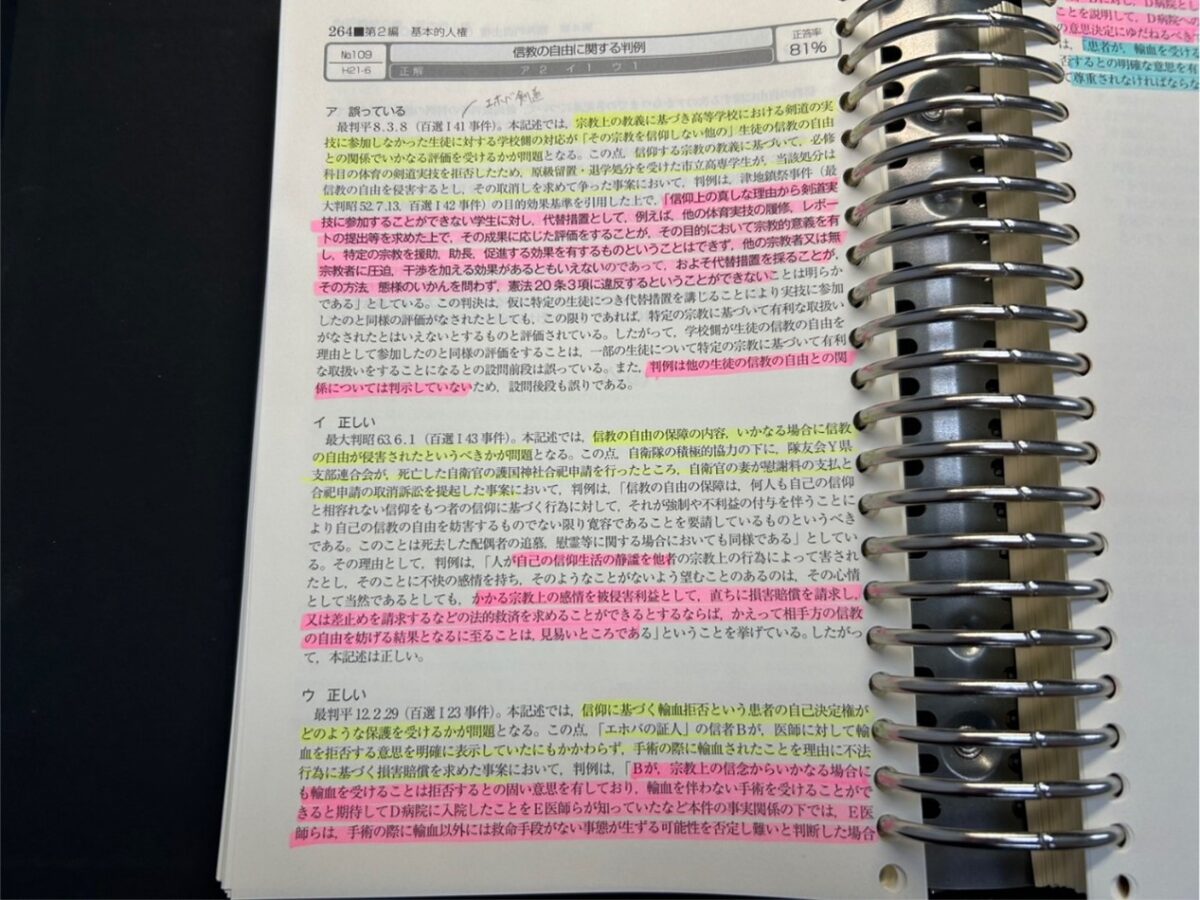 264■第2編 基本的人権
№109
H21-6
信教の自由に関する判例
正解 ア 2 イ 1 ウ 1
正答率
81%
エホバ剣道
ア 誤っている
最判平8.3.8(百選Ⅰ41事件)。本記述では,宗教上の教義に基づき高等学校における剣道の実
技に参加しなかった生徒に対する学校側の対応が「その宗教を信仰しない他の」生徒の信教の自由
との関係でいかなる評価を受けるかが問題となる。この点,信仰する宗教の教義に基づいて,必修
科目の体育の剣道実技を拒否したため,原級留置・退学処分を受けた市立高専学生が,当該処分は
信教の自由を侵害するとし,その取消しを求めて争った事案において,判例は,津地鎮祭事件(最
大判昭52.7.13,百選Ⅰ42事件)の目的効果基準を引用した上で,「信仰上の真しな理由から剣道実
技に参加することができない学生に対し,代替措置として,例えば,他の体育実技の履修,レポー
トの提出等を求めた上で,その成果に応じた評価をすることが,その目的において宗教的意義を有
し,特定の宗教を援助,助長,促進する効果を有するものということはできず,他の宗教者又は無
宗教者に圧迫,干渉を加える効果があるともいえないのであって,およそ代替措置を採ることが,
その方法,態様のいかんを問わず,憲法20条3項に違反するということができないことは明らか
である」としている。この判決は,仮に特定の生徒につき代替措置を講じることにより実技に参加
したのと同様の評価がなされたとしても,この限りであれば,特定の宗教に基づいて有利な取扱い
がなされたとはいえないとするものと評価されている。したがって,学校側が生徒の信教の自由を
理由として参加したのと同様の評価をすることは,一部の生徒について特定の宗教に基づいて有利
な取扱いをすることになるとの設問前段は誤っている。また,判例は他の生徒の信教の自由との関
係については判示していないため,設問後段も誤りである。
イ 正しい
最大判昭63.6.1(百選Ⅰ43事件)。本記述では,信教の自由の保障の内容,いかなる場合に信教
の自由が侵害されたというべきかが問題となる。この点,自衛隊の積極的協力の下に,隊友会Y県
支部連合会が,死亡した自衛官の護国神社合祀申請を行ったところ,自衛官の妻が慰謝料の支払と
合祀申請の取消訴訟を提起した事案において,判例は,「信教の自由の保障は,何人も自己の信仰
と相容れない信仰をもつ者の信仰に基づく行為に対して,それが強制や不利益の付与を伴うことに
より自己の信教の自由を妨害するものでない限り寛容であることを要請しているものというべき
である。このことは死去した配偶者の追慕,慰霊等に関する場合においても同様である」としてい
る。その理由として,判例は,「人が自己の信仰生活の静謐を他者の宗教上の行為によって害され
たとし,そのことに不快の感情を持ち,そのようなことがないよう望むことのあるのは,その心情
として当然であるとしても,かかる宗教上の感情を被侵害利益として,直ちに損害賠償を請求し,
又は差止めを請求するなどの法的救済を求めることができるとするならば,かえって相手方の信教
の自由を妨げる結果となるに至ることは,見易いところである」ということを挙げている。したがっ
て,本記述は正しい。
ウ 正しい
最判平12.2.29(百選Ⅰ23事件)。本記述では,信仰に基づく輸血拒否という患者の自己決定権が
どのような保護を受けるかが問題となる。この点,「エホバの証人」の信者Bが,医師に対して輸
血を拒否する意思を明確に表示していたにもかかわらず,手術の際に輸血されたことを理由に不法
行為に基づく損害賠償を求めた事案において,判例は,「Bが,宗教上の信念からいかなる場合に
も輸血を受けることは拒否するとの固い意思を有しており,輸血を伴わない手術を受けることがで
きると期待してD病院に入院したことをE医師らが知っていたなど本件の事実関係の下では,E医
師らは,手術の際に輸血以外には救命手段がない事態が生ずる可能性を否定し難いと判断した場合
に対し,D病院とし
ことを説明して,D病院への
の意思決定にゆだねるべき
は,「患者が,輸血を受ける
否するとの明確な意思を有
て尊重されなければならな